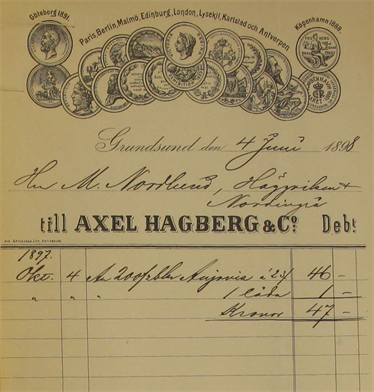 Göteborg 1891. Paris, Berlin, Malmö, Edinburg, London, Lysekil, Karlstad och Antverpen Köpenhamn 1888.
Grundsund den 4 Juni 1898
Herr M. Nordlund, Häggviken &
Nordingrå
till AXEL HAGBERG & Co. Debt.
1897.
Okt. 4 An 200/2 bbl Anjovis à 23/ 46 –
" " " 1 låda 1 –
Kronor 47 –